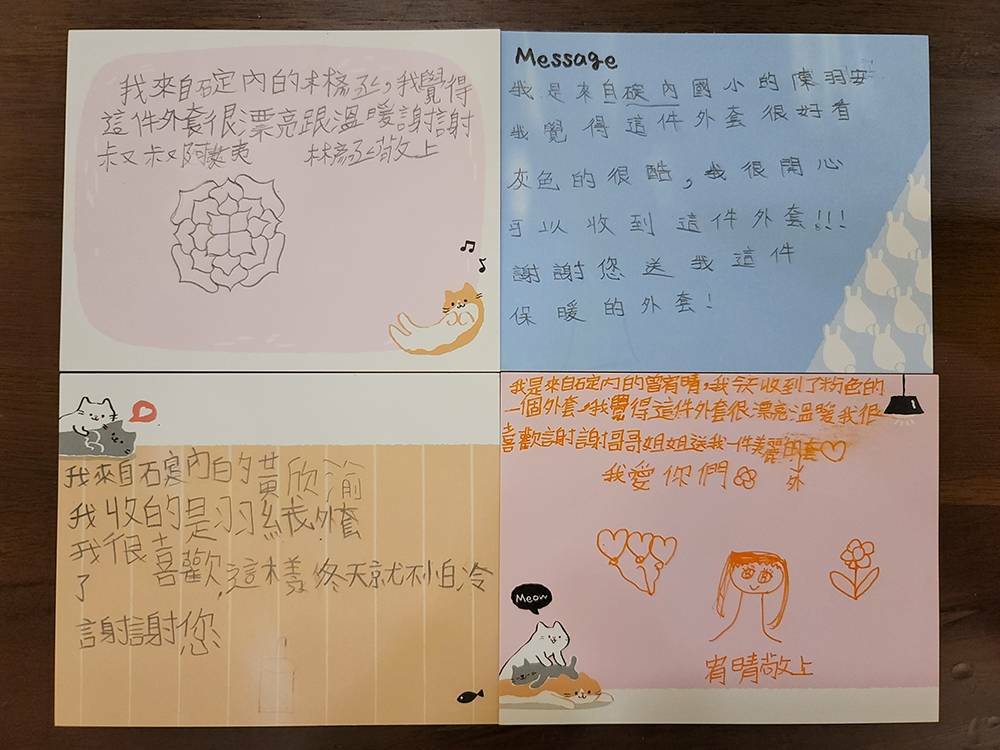 我來自碇內的林橋泓,我覺得
這件外套很漂亮跟溫暖謝謝
叔叔阿姨 敬上
Message
我是來自碇內國小的陳羽安
我覺得這件外套很好看
灰色的很酷,我很開心
可以收到這件外套!!!
謝謝您送我這件
保暖的外套!
我來自石定內的黃欣渝
我收的是羽絨外套
我很喜歡,這樣冬天就不怕冷
了
謝謝您
我是來自碇內的曾宥晴,我今天收到了粉色的
一個外套,我覺得這件外套很漂亮溫暖我很
喜歡謝謝哥哥姐姐送我一件美麗的外套
我愛你們
Meow
宥晴敬上